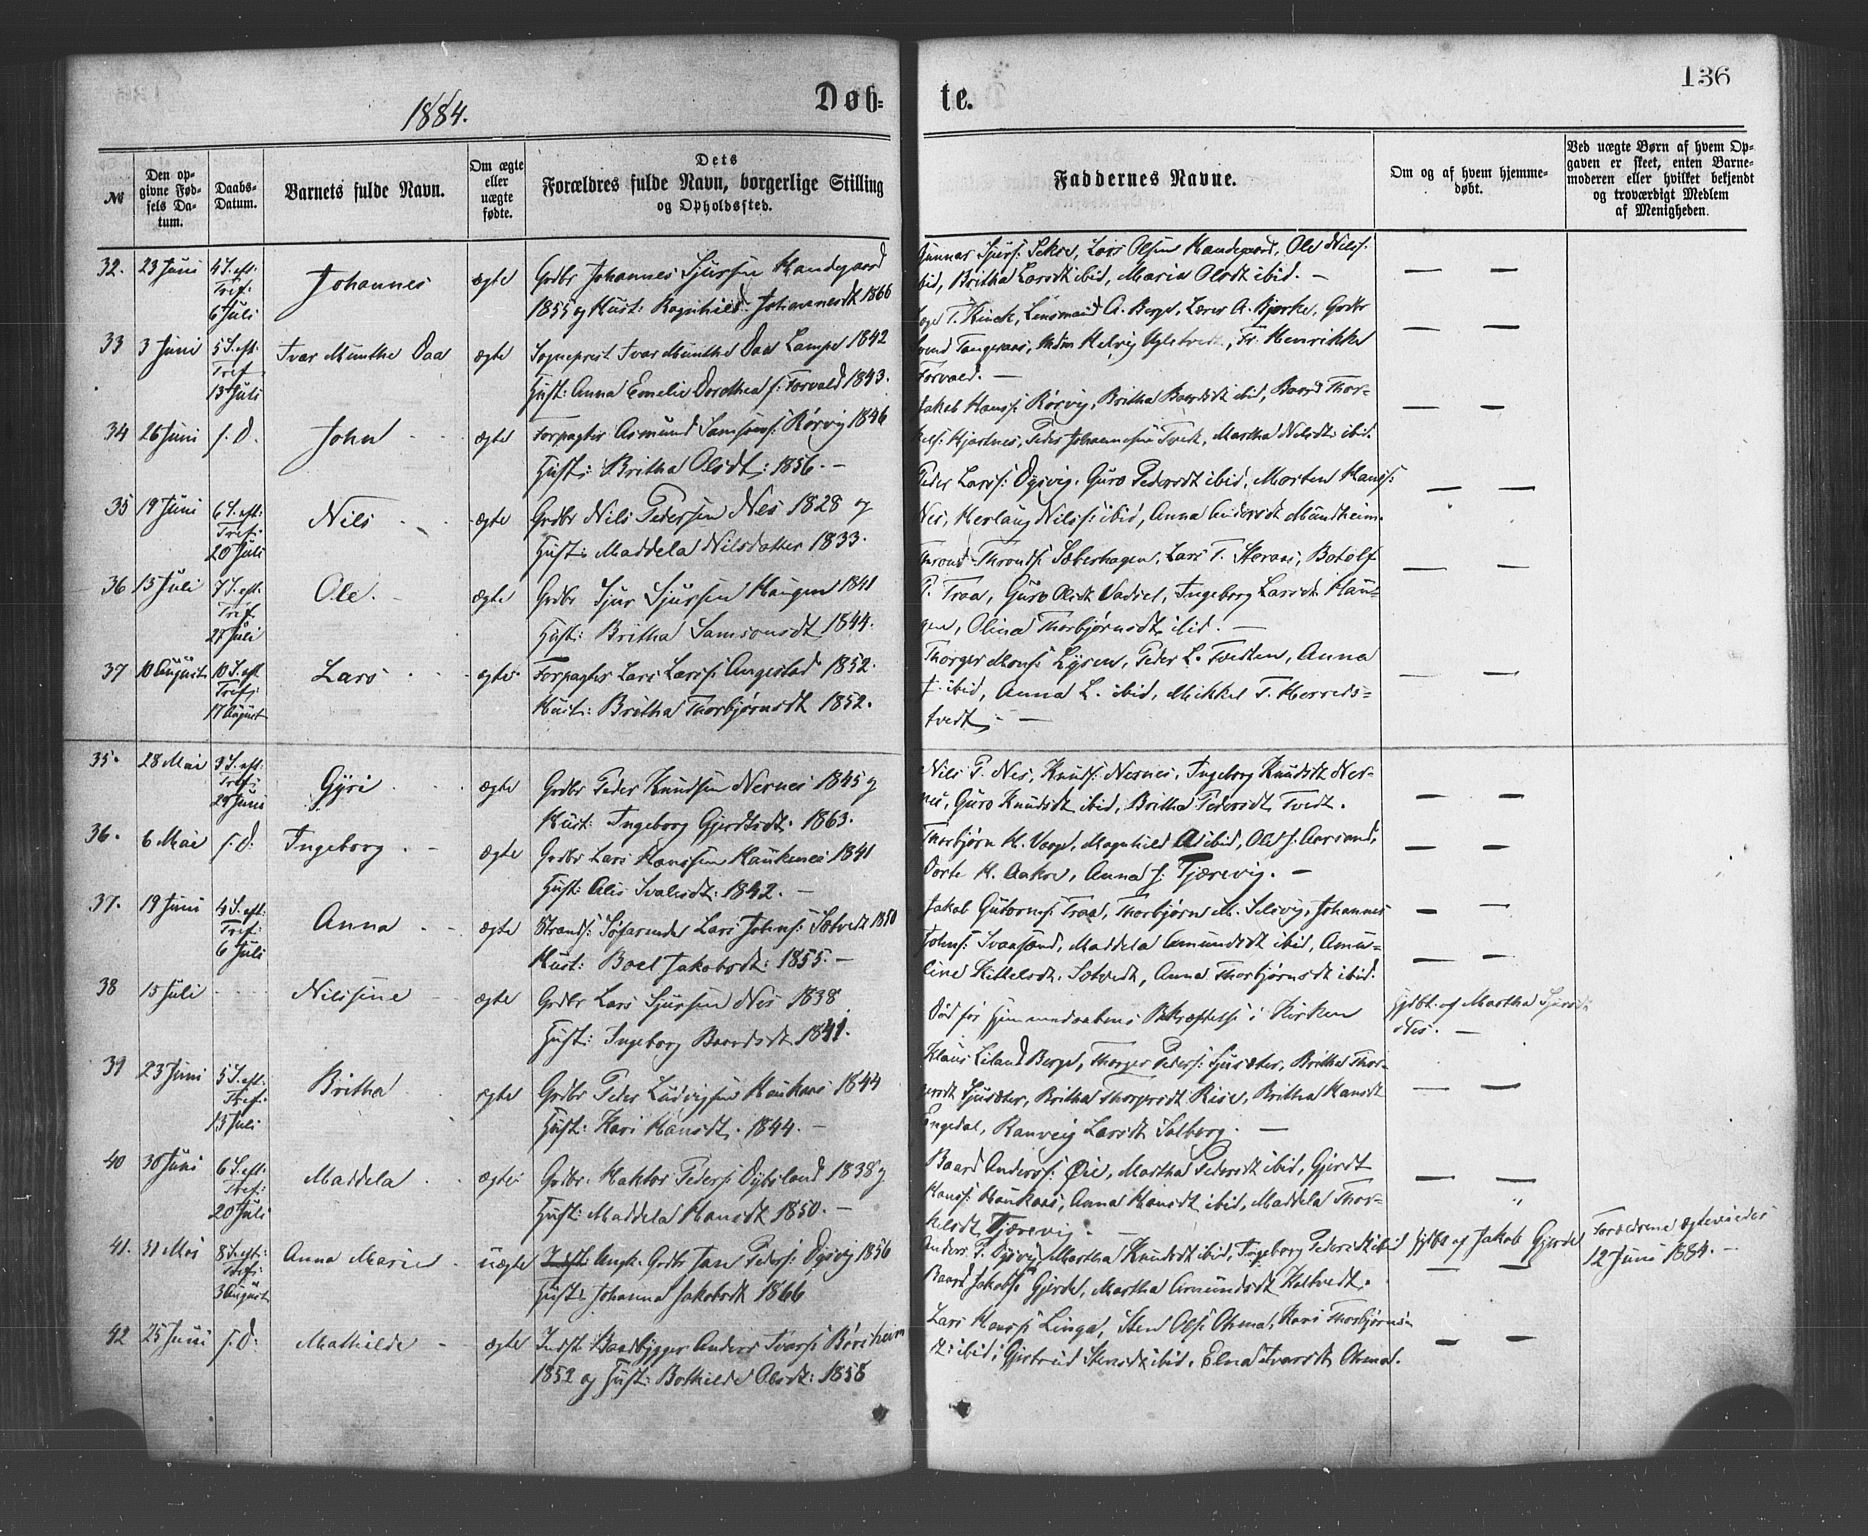 136
1884.
Døb-
te.
№
Den op-
givne Fød-
sels Da-
tum.
Daabs-
Datum.
Barnets fulde Navn.
Om ægte
eller
uægte
fødte.
Dets
Forældres fulde Navn, borgerlige Stilling
og Opholdssted.
Faddernes Navne.
Om og af hvem hjemme-
døbt.
Ved uægte Børn af hvem Op-
gaven er skeet, enten Barne-
moderen eller hvilket bekjendt
og troværdigt Medlem
af Menigheden.
32. 23 Juni 4 S. eft: Tref: 6 Juli Johannes ægte Grdbr Johannes Sjursen Handegaard
1855 og Hust: Ragnhild Johannesdt 1866
Gunnar Sjurs: Lars Olsen Handegaard, Ole Nils:
ibid, Britha Larsdt ibid, Maria Olsdt ibid. —
33 3 Juni 5 S. eft: Tref 13 Juli Ivar Munthe Daa ægte Sogneprest Ivar Munthe Daa Lampe 1842
Hust: Anna Emelie Dorothea f: Forvald 1843.
T. Kinck, Lensmand A. Berge, Lærer A. Bjerke, Grdbr
Tangeraas, Mdm Helvig, Fr. Henrikke
Forvald. —
34 26 Juni s. D. John ægte Forpagter Asmund Samsons: Rørvig 1846
Hust: Britha Olsdt: 1856. —
Jakob Hans: Rørvig, Britha Baardsdt ibid, Baard Thor-
kels: Hjartnes, Peder Johannesen Tvedt, Martha Nilsdt ibid.
35 19 Juni 6 S. eft: Tref: 20 Juli Nils ægte Grdbr Nils Pedersen Nes 1828 og
Hust: Maddela Nilsdatter 1833.
Peder Lars: Dysvig, Guro Pedersdt ibid, Morten Hans:
Nes, Herlaug Nils: ibid, Anna Andersdt Mundheim.
36 15 Juli 7 S. eft: Tref 27 Juli Ole. ægte Grdbr Sjur Sjursen Haugen 1841
Hust: Britha Samsonsdt 1844.
Thrond Thronds: Sæberhagen, Lars T. Steraas, Botolf
P. Traa, Guro Olsdt Vadsel, Ingeborg Larsdt Hau-
gen, Olina Thorbjørnsdt ibid. —
37 10 August 10 S. eft Tref: 17 August Lars ægte Forpagter Lars Lars: Augestad 1852.
Hust: Britha Thorbjørnsdt 1852.
Thorger Mons: Lysen, Peder L. Tvedten, Anna
ibid, Anna L. ibid, Mikkel T. Herreds-
tvedt. —
35. 28 Mai 3 S. eft: Tref: 29 Juni Gyri ægte Grdbr Peder Knudsen Nernes 1845 og
Hust: Ingeborg Gjerdtsdt. 1863.
Nils P. Nes, Knuds: Nernes, Ingeborg Knudsdt Ner-
nes, Guro Knudsdt ibid, Britha Pedersdt Tvedt.
36. 6 Mai s. D. Ingeborg ægte Grdbr Lars Hanssen Haukenes 1841
Hust: Alis Ivalsdt: 1842. —
Thorbjørn H. Vage, Magnhild A. ibid, Ole J. Aarsand,
Dorte H. Aakre, Anna J. Tjærevig. —
37. 19 Juni 4 S. eft: Tref: 6 Juli Anna ægte Strands: Søfarende Lars Johns: Sætvedt 1850
Hust: Boel Jakobsdt: 1855. —
Jakob Gutorms: Traa, Thorbjørn M. Selsvig, Johannes
Johns: Svaasand, Maddela Amundsdt ibid, Amu-
line Kittelsdt. Sætvedt, Anna Thorbjørnsdt ibid.
38 15 Juli Nilsine ægte Grdbr Lars Sjursen Nes 1838
Hust: Ingeborg Baardsdt 1841.
Død før Hjemmedaabens Bekræftelse i Kirken
Hjdbt. af Martha
Nes. —
39 23 Juni 5 S. eft: Tref: 13 Juli Britha ægte Grdbr Peder Ludvigsen Haukaas 1844
Hust: Kari Hansdt. 1844. —
Klaus Leland Berge, Thorger Peders: Sjusæter, Britha Thor-
gersdt Sjusæter, Britha Thorgersdt Rise, Britha Hansdt
Engedal, Ranveig Larsdt Solberg. —
40 30 Juni 6 S. eft: Tref: 20 Juli Maddela ægte Grdbr. Haktor Peders: Dybsland 1838 og
Hust: Maddela Hansdt 1850. —
Baard Anders: Øie, Martha Pedersdt ibid, Gjerdt
Hans: Haukaas, Anna Hansdt ibid, Maddela Thor-
kelsdt Tjærevig. —
41. 31 Mai 8 S. eft: Tref: 3 August Anna Marie uægte Ungk. Grdbr Jan Peders: Dysvig 1856
Hust: Johanna Jakobsdt 1866
Anders P. Dysvig, Martha Knudsdt ibid, Ingeborg Pedersdt ibid
Baard Jakobs: Gjerde, Martha Amundsdt Kaltvedt.
Hjdbt af Jakob Gjerde
Forældrene ægteviedes
12 Juni 1884. —
42 25 Juni s. D. Mathilde ægte Indst: Baadbygger Anders Ivars: Børsheim
1852 og Hust: Bothilde Olsdt: 1858
Lars Hans: Linga, Sten Ols: Omma, Kari Thorbjørns-
dt: ibid, Gjertrud Stensdt ibid. Elna Ivarsdt Omma.